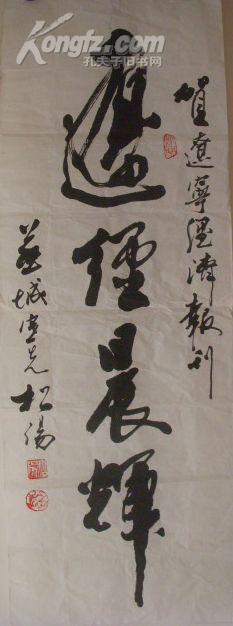 Kongfz.com
孔夫子旧书网
賀遼寧經濟報刊
遼經晨輝
城 先 松